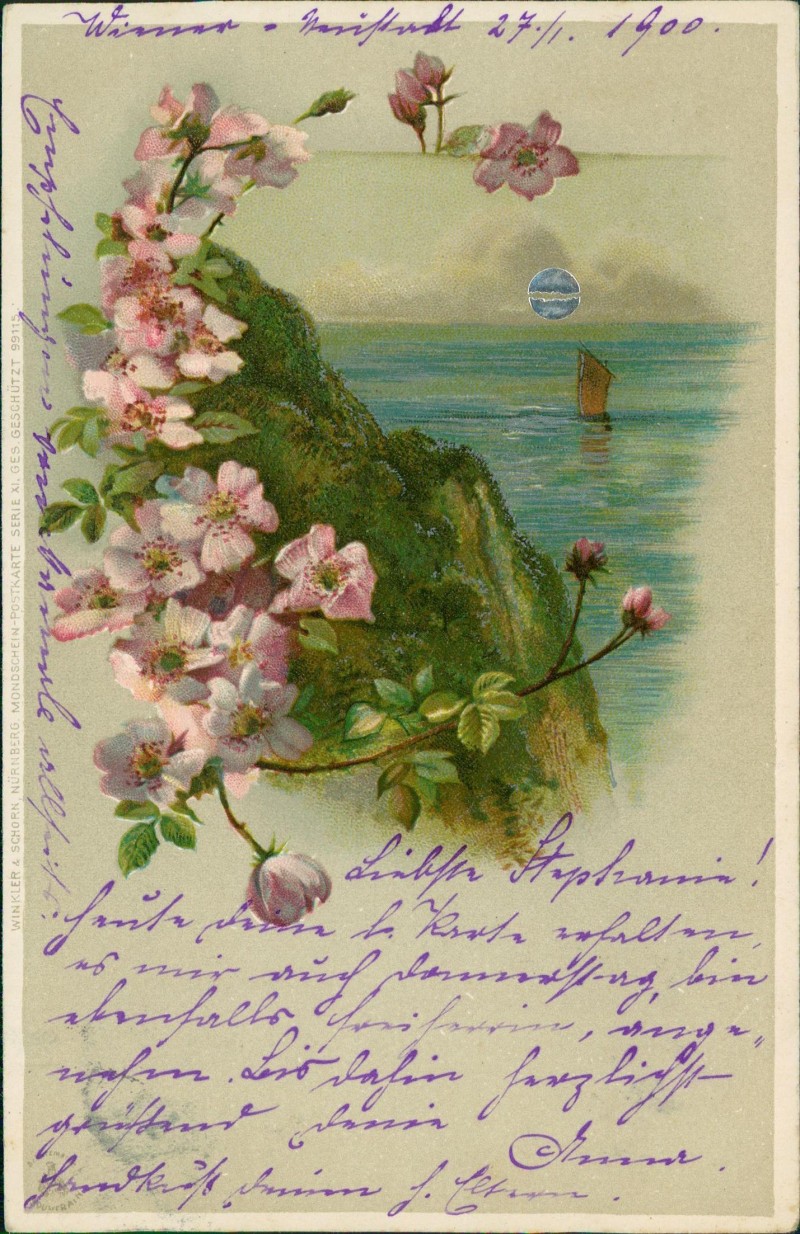 Wiener-Neustadt 27./1. 1900.
Liebste Stephanie!
heute deine l. Karte erhalten,
es mir auch Donnerstag, bin
ebenfalls freiherrin, ange„
nehm. Bis dahin herzlichst
grüßend deine
Anna.
Handkuß deinen h. Eltern.
Empfehlungen
WINKLER & SCHORN, NÜRNBERG. MONDSCHEIN-POSTKARTE SERIE XI. GES. GESCHÜTZT 99115.